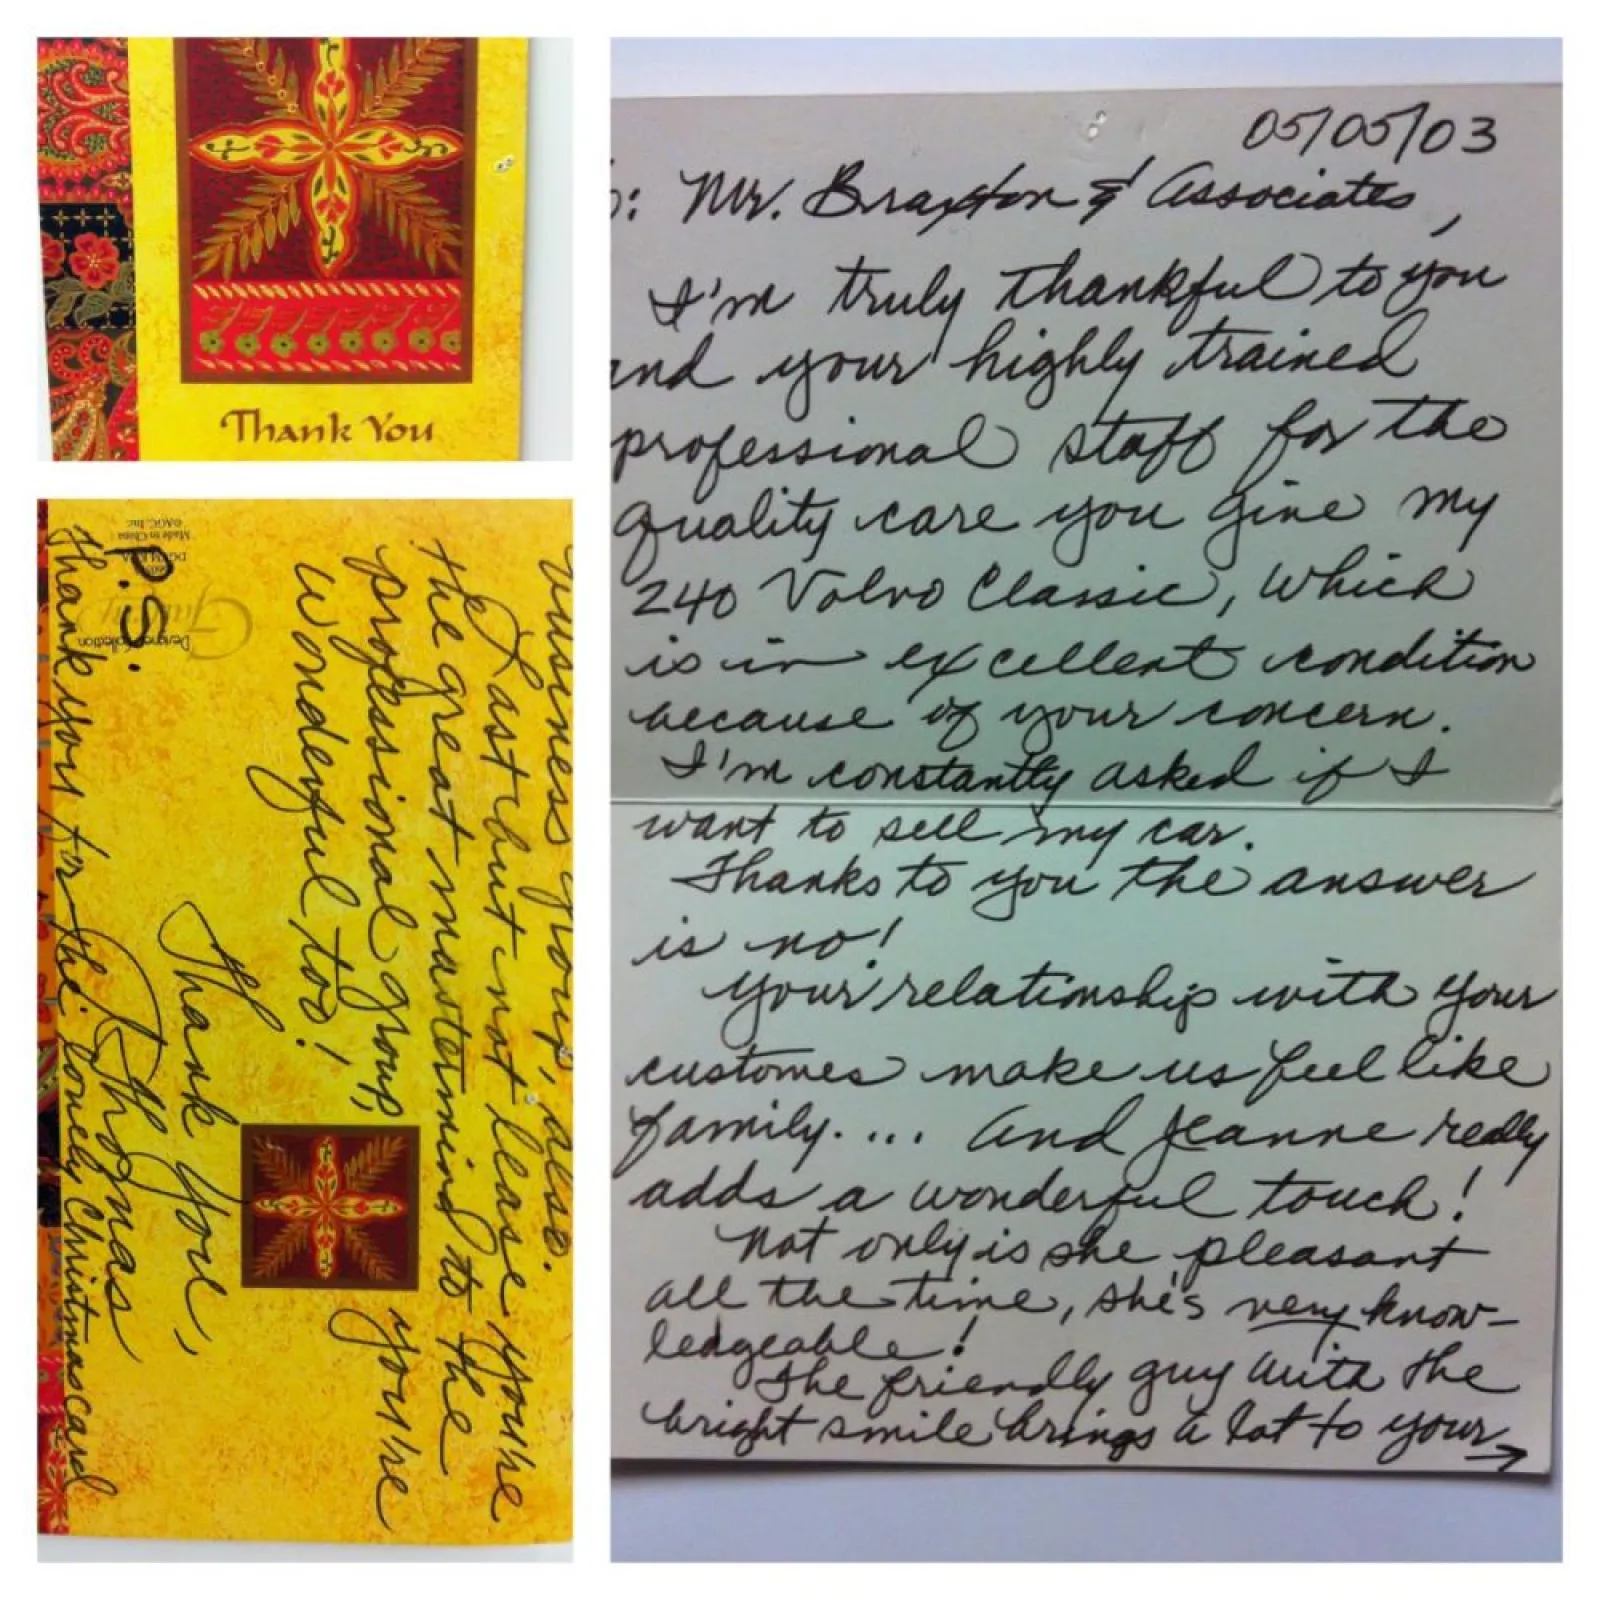 Thank You
05/05/03
: Mr. Braxton & Associates,
I'm truly thankful to you
and your highly trained
professional staff for the
quality care you give my
240 Volvo Classic, which
is in excellent condition
because of your concern.
I'm constantly asked if I
want to sell my car.
Thanks to you the answer
is no!
Your relationship with your
customes make us feel like
family.... And Jeanne really
adds a wonderful touch!
Not only is she pleasant
all the time, she's very know-
ledgeable!
The friendly guy with the
bright smile brings a lot to your →
business group, also.
Last but not lease you're
the great mastermind to the
professional group, you're
wonderful too!
Thank You,
R Thomas
P.S.
Thank you for the lovely Christmas card
Designer Collection
Made in China
©AGC, Inc.